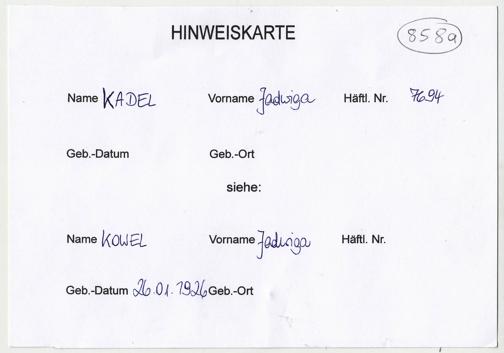 HINWEISKARTE 858a
Name KADEL Vorname Jadwiga Häftl. Nr. 7694
Geb.-Datum Geb.-Ort
siehe:
Name KOWEL Vorname Jadwiga Häftl. Nr.
Geb.-Datum 26.01.1926 Geb.-Ort